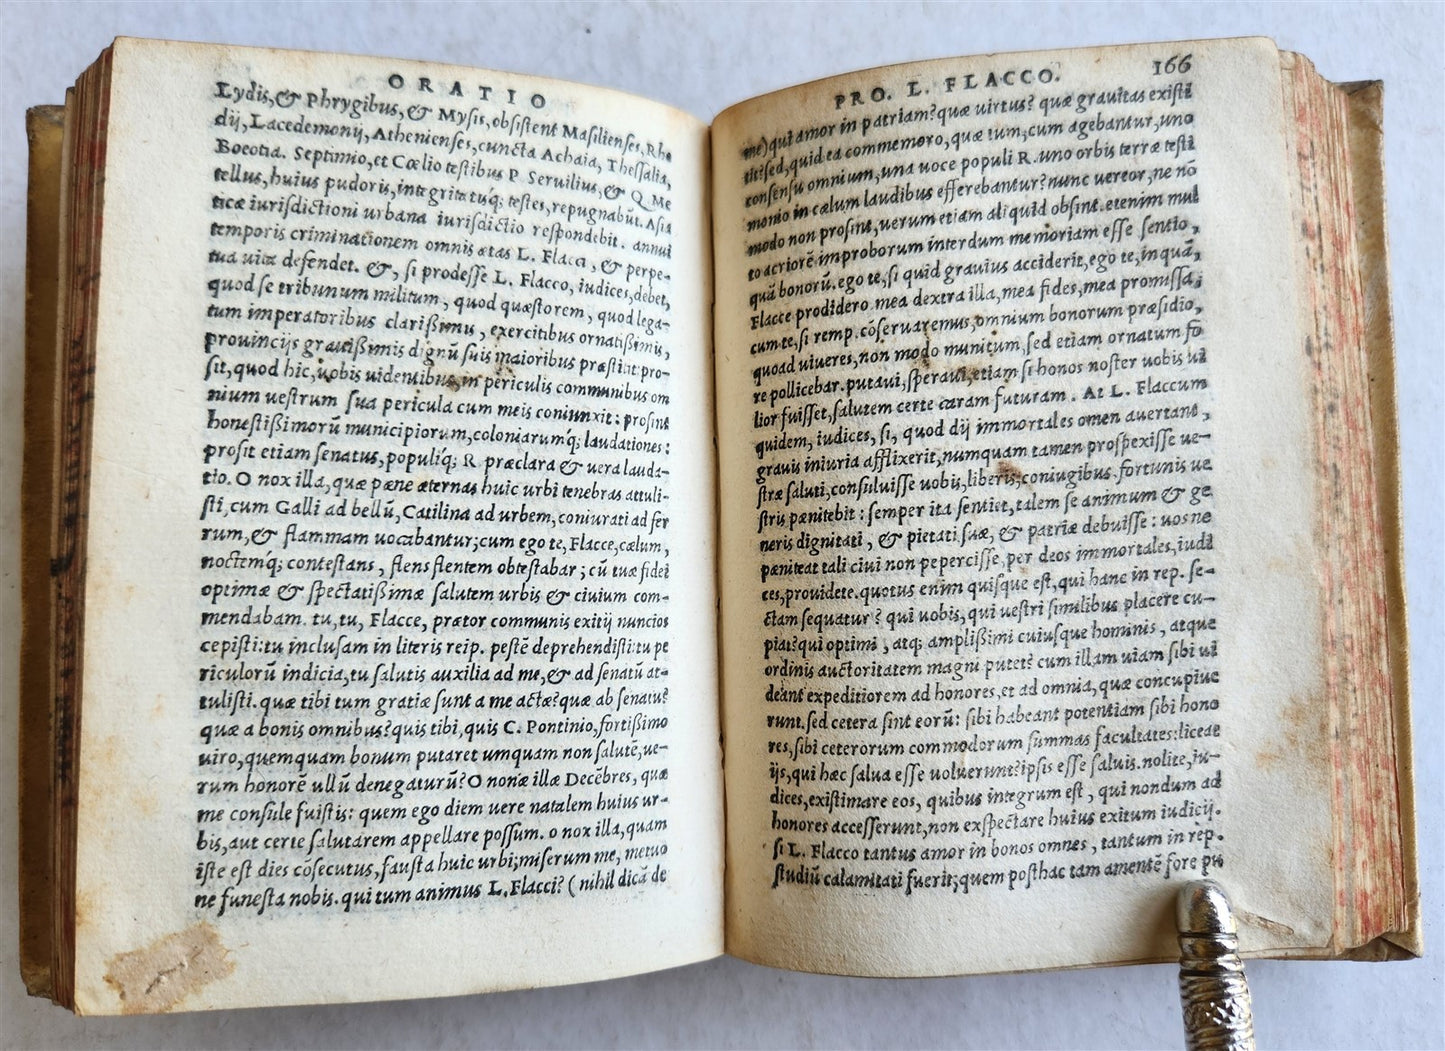 ORATIO
Lydis,& Phrygibus,& Mysis,obsistent Masilienses,Rho
dij, Lacedemonij, Athenienses, cuncta Achaia, Thessalia,
Boeotia. Septimio,et Cœlio testibus P. Seruilius,& Q. Me
tellus,huius pudoris,integritatúq; testes,repugnabũt. Asia
ticæ iurisdictioni urbana iurisdictio respondebit. annui
temporis criminationem omnis ætas L. Flacci, & perpe-
tua uita defendet. &, si prodesse L. Flacco, iudices,debet,
quod se tribunum militum, quod quæstorem, quod lega-
tum imperatoribus clarißimis, exercitibus ornatißimis,
prouincijs grauißimis dignũ suis maioribus præstitit:pro-
sit,quod hic,uobis uidentibus,in periculis communibus om
nium uestrum sua pericula cum meis coniunxit: prosint
honestißimorũ municipiorum,coloniarumq́; laudationes:
prosit etiam senatus,populiq́; R. præclara & uera lauda-
tio. O nox illa,quæ pæne æternas huic urbi tenebras attuli-
sti,cum Galli ad bellũ, Catilina ad urbem,coniurati ad fer
rum,& flammam uocabantur;cum ego te, Flacce,cælum,
noctemq́; contestans, flens flentem obtestabar; cũ tuæ fidei
optimæ & spectatißimæ salutem urbis & ciuium com-
mendabam. tu,tu, Flacce, prætor communis exitij nuncios
cepisti:tu inclusam in literis reip. pestẽ deprehendisti:tu pe
riculorũ indicia,tu salutis auxilia ad me,& ad senatũ at-
tulisti. quæ tibi tum gratiæ sunt a me actæ?quæ ab senatu?
quæ a bonis omnibus?quis tibi,quis C. Pontinio,fortißimo
uiro,quemquam bonum putaret umquam non salutẽ,ue-
rum honorẽ ullũ denegaturũ? O nonæ illæ Decẽbres, quæ
me consule fuistis: quem ego diem uere natalem huius ur-
bis,aut certe salutarem appellare possum. o nox illa,quam
iste est dies cõsecutus,fausta huic urbi;miserum me, metuo
ne funesta nobis. qui tum animus L. Flacci? ( nihil dicã de
PRO. L. FLACCO. 166
me) qui amor in patriam?quæ uirtus? quæ grauitas existi
tit?sed,quid ea commemoro,quæ tum,cum agebantur,uno
consensu omnium,una uoce populi R. uno orbis terræ testi
monio in cælum laudibus efferebantur?nunc uereor, ne nõ
modo non prosint,uerum etiam aliquid obsint. etenim mul
to acriorẽ improborum interdum memoriam esse sentio,
quã bonorũ. ego te,si quid grauius acciderit,ego te,inquã,
Flacce prodidero. mea dextra illa, mea fides,mea promissa,
cum te,si remp. cõseruaremus,omnium bonorum præsidio,
quoad uiueres,non modo munitum,sed etiam ornatum fo
re pollicebar. putaui,speraui,etiam si honos noster uobis ui
lior fuisset,salutem certe caram futuram. At L. Flaccum
quidem, iudices, si, quod dij immortales omen auertant,
grauis iniuria afflixerit,numquam tamen prospexisse ue-
stræ saluti,consuluisse uobis,liberis,coniugibus,fortunis ue
stris pænitebit: semper ita sentiet,talem se animum & ge
neris dignitati, & pietati suæ, & patriæ debuisse: uos ne
pæniteat tali ciui non pepercisse,per deos immortales,iudi
ces,prouidete. quotus enim quisque est, qui hanc in rep. se-
ctam sequatur? qui uobis, qui uestri similibus placere cu-
piat?qui optimi, atq; amplißimi cuiusque hominis, atque
ordinis auctoritatem magni putet? cum illam uiam sibi ui
deant expeditiorem ad honores,et ad omnia,quæ concupiue
runt. sed cetera sint eorũ: sibi habeant potentiam sibi hono
res,sibi ceterorum commodorum summas facultates:liceat
ijs,qui hæc salua esse uoluerunt?ipsis esse saluis. nolite,iu-
dices,existimare eos, quibus integrum est, qui nondum ad
honores accesserunt,non exspectare huius exitum iudicij.
si L. Flacco tantus amor in bonos omnes, tantum in rep.
studiũ calamitati fuerit;quem posthac tam amentẽ fore pu